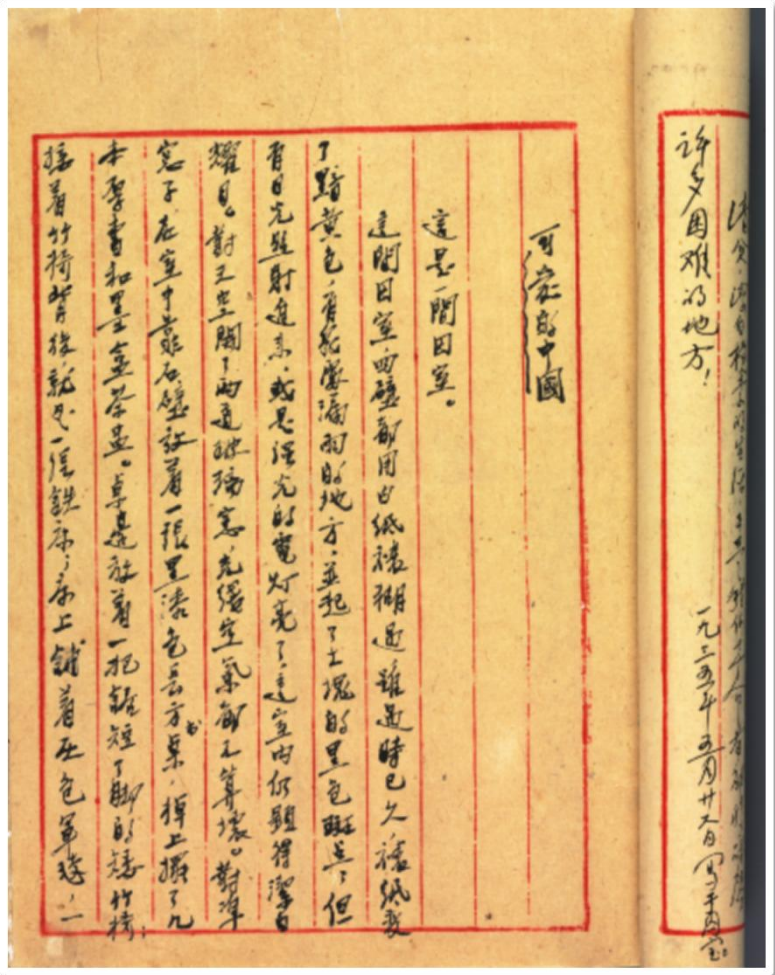 清貧,潔白樸素的生活,正是我們革命者能夠戰勝
許多困难的地方!
一九三五年五月廿六日寫于囚室。
可愛的中國
這是一間囚室。
這間囚室,四壁都用白紙裱糊過,雖過時已久,裱紙变
了黯黄色,有幾處漏雨的地方,並起了大塊的黑色斑点;但
有日光照射進来,或是强光的電灯亮了,這室内仍顯得潔白
耀目。對天空開了兩道玻璃窓,光綫空氣都不算壞。對準
窓子,在室中靠石壁放着一張黑漆色長方書桌,桌上擺了几
本厚書和墨盒茶盅。桌邊放着一把鋸短了脚的矮竹椅;
接着竹椅背後,就是一張鉄床;床上鋪着灰色軍毯,一